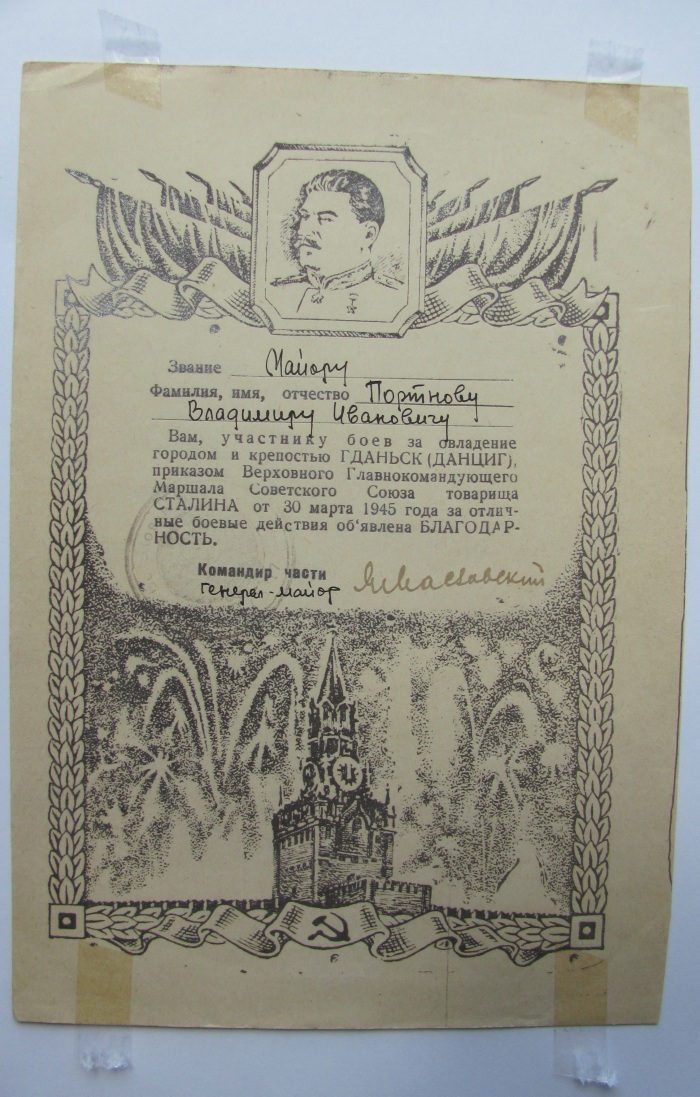 Звание Майору
Фамилия, имя, отчество Портнову
Владимиру Ивановичу
Вам, участнику боев за овладение
городом и крепостью ГДАНЬСК (ДАНЦИГ),
приказом Верховного Главнокомандующего
Маршала Советского Союза товарища
СТАЛИНА от 30 марта 1945 года за отлич-
ные боевые действия об'явлена БЛАГОДАР-
НОСТЬ.
Командир части
генерал-майор